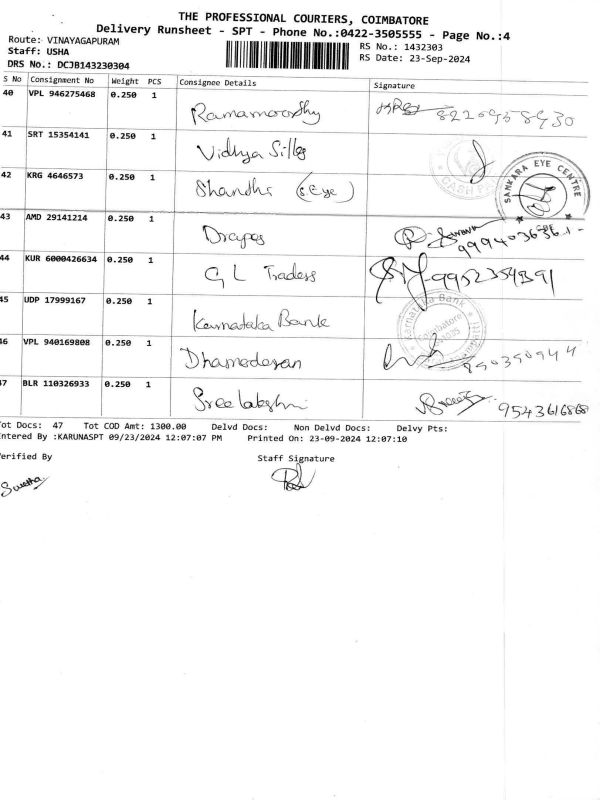 THE PROFESSIONAL COURIERS, COIMBATORE
Delivery Runsheet - SPT - Phone No.:0422-3505555 - Page No.:4
Route: VINAYAGAPURAM
Staff: USHA
DRS No.: DCJB143230304
RS No.: 1432303
RS Date: 23-Sep-2024
S No Consignment No Weight PCS Consignee Details Signature
40 VPL 946275468 0.250 1 Ramamoorthy
41 SRT 15354141 0.250 1 Vidhya Silks
42 KRG 4646573 0.250 1 Shandhi (s.Eye) SANKARA EYE CENTRE
43 AMD 29141214 0.250 1 Drapes
44 KUR 6000426634 0.250 1 G L Traders 9952354391
45 UDP 17999167 0.250 1 Karnataka Bank Karnataka Bank Coimbatore
46 VPL 940169808 0.250 1 Dhamodaran
47 BLR 110326933 0.250 1 Sree lakshmi 9543616868
Tot Docs: 47 Tot COD Amt: 1300.00 Delvd Docs: Non Delvd Docs: Delvy Pts:
Entered By :KARUNASPT 09/23/2024 12:07:07 PM Printed On: 23-09-2024 12:07:10
Verified By Staff Signature